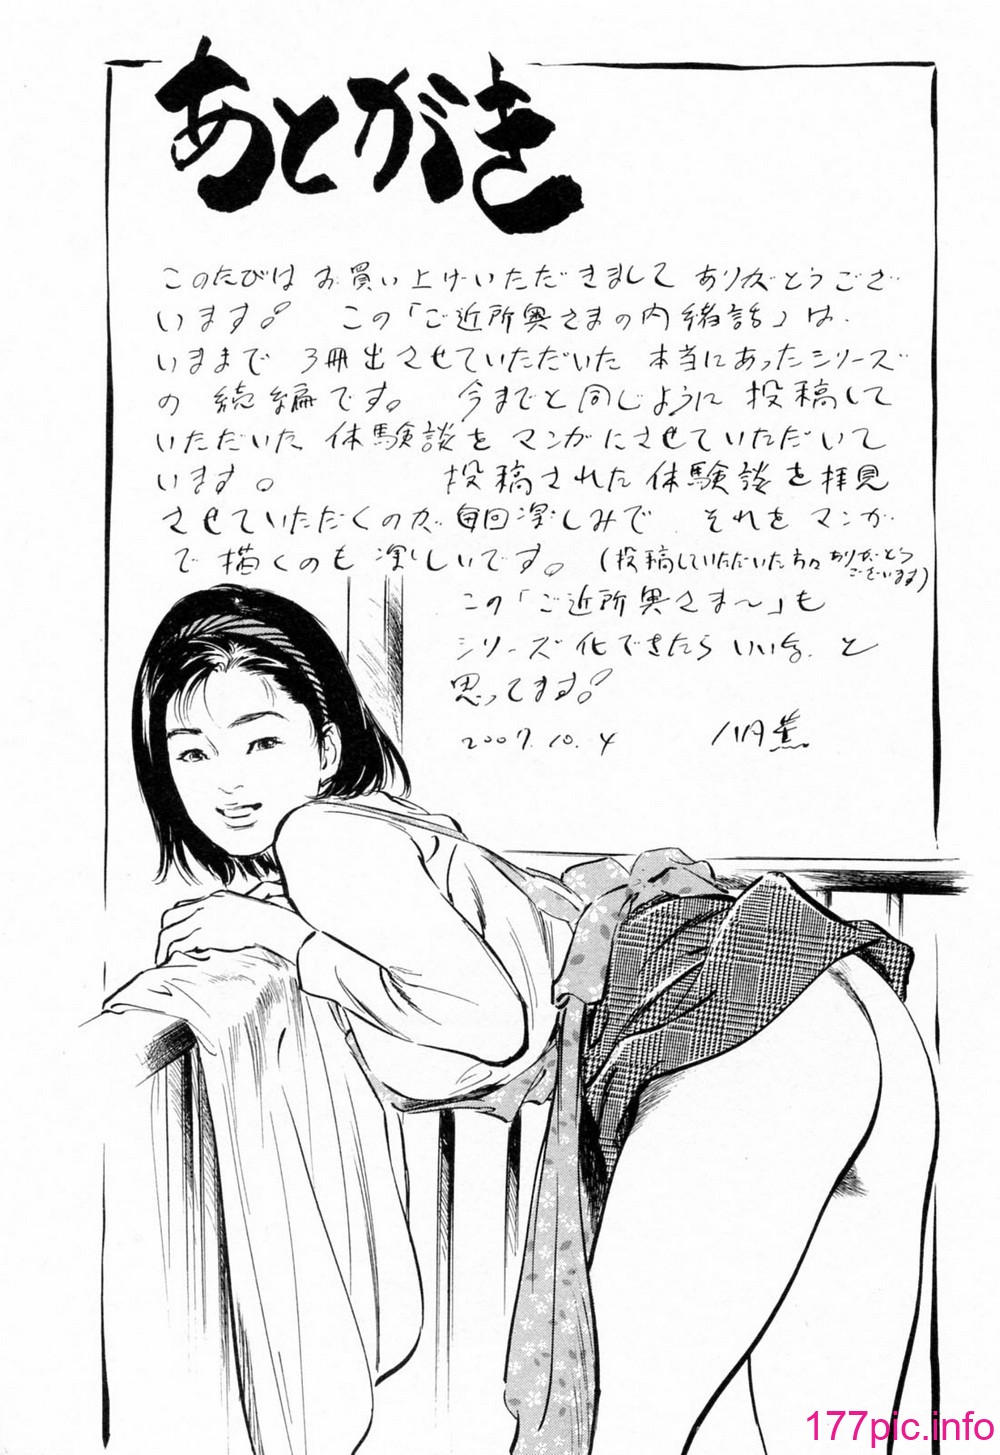 あとがき
このたびは お買い上げいただきまして ありがとうござ
います。 この「ご近所奥さまの内緒話」は、
いままで 3冊出させていただいた 本当にあったシリーズ
の 続編です。 今までと同じように 投稿して
いただいた 体験談を マンガにさせていただいて
います。 投稿された 体験談を拝見
させていただくのが 毎回楽しみで それを マンガ
で描くのも 楽しいです。(投稿していただいた方々 ありがとう
ございます)
この「ご近所奥さま〜」も
シリーズ化できたら いいな と
思ってます。
2007.10.4
177pic.info